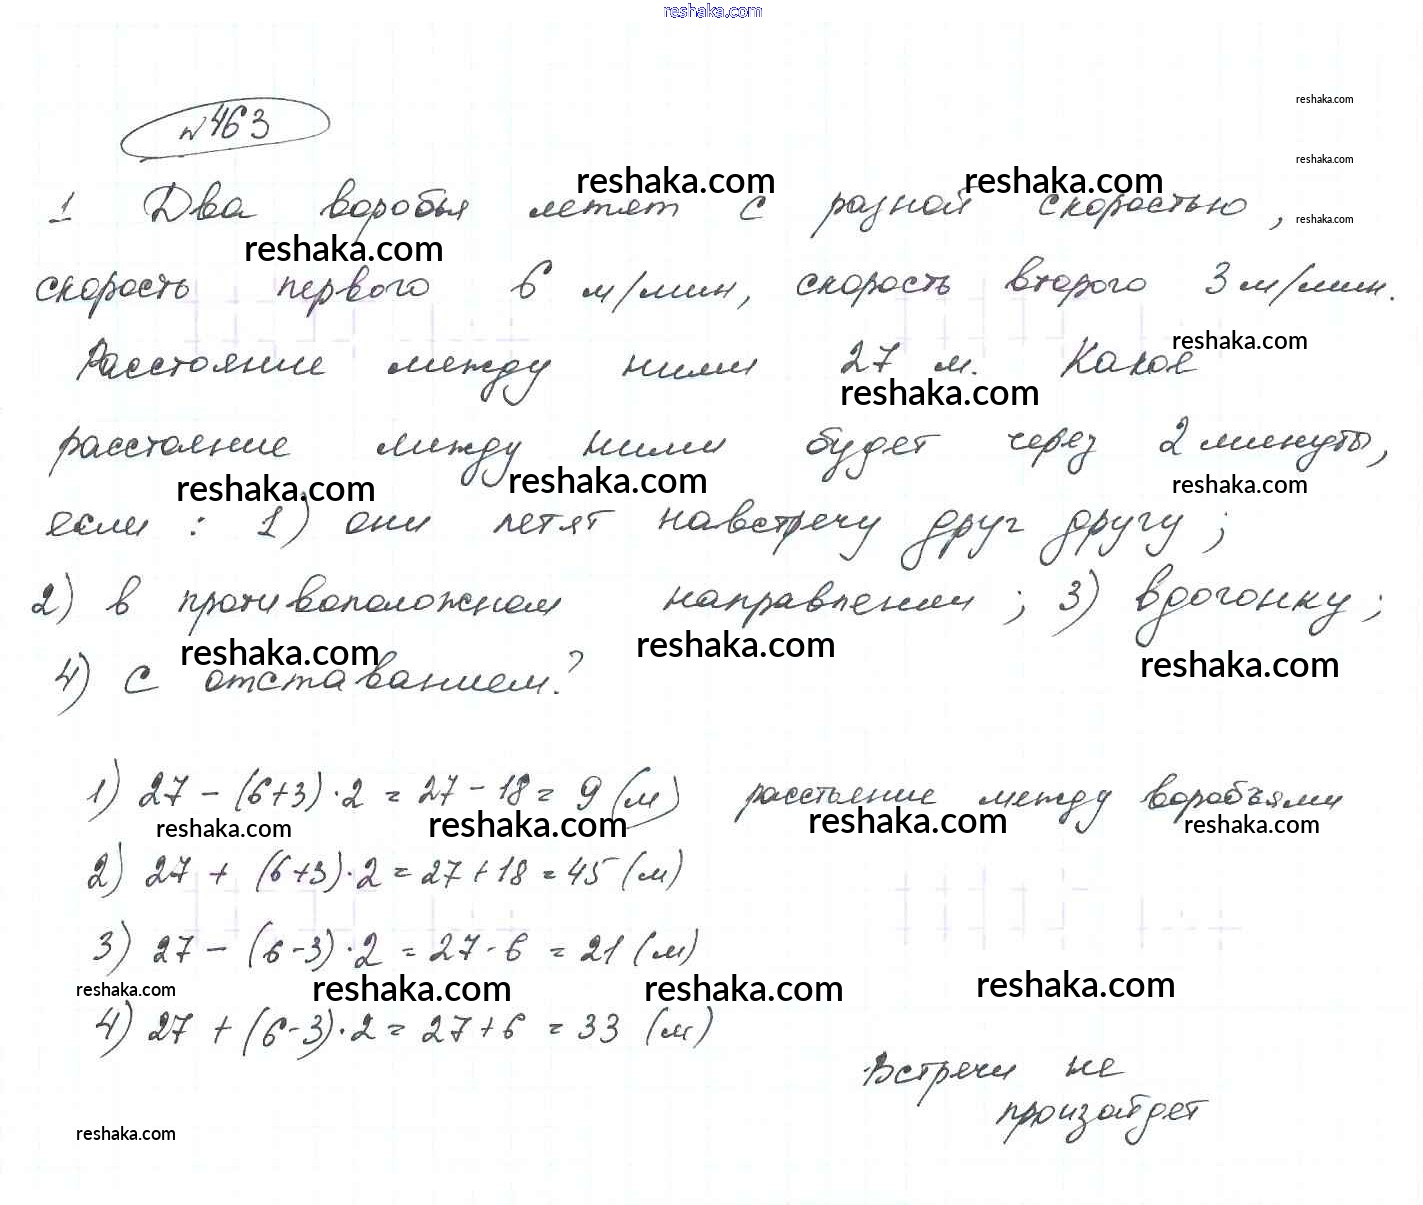 reshaka.com
№463
reshaka.com
reshaka.com
reshaka.com reshaka.com
1 Два воробья летят с разной скоростью, reshaka.com
reshaka.com
скорость первого 6 м/мин, скорость второго 3 м/мин.
reshaka.com
Расстояние между ними 27 м. Какое
reshaka.com
расстояние между ними будет через 2 минуты,
reshaka.com reshaka.com reshaka.com
если : 1) они летят навстречу друг другу ;
2) в противоположном направлении ; 3) вдогонку ;
reshaka.com reshaka.com reshaka.com
4) с отставанием?
1) 27 - (6+3) · 2 = 27 - 18 = 9 (м) расстояние между воробьями
reshaka.com reshaka.com reshaka.com reshaka.com
2) 27 + (6+3) · 2 = 27 + 18 = 45 (м)
3) 27 - (6-3) · 2 = 27 - 6 = 21 (м)
reshaka.com reshaka.com reshaka.com reshaka.com
4) 27 + (6-3) · 2 = 27 + 6 = 33 (м)
Встречи не
произойдет
reshaka.com